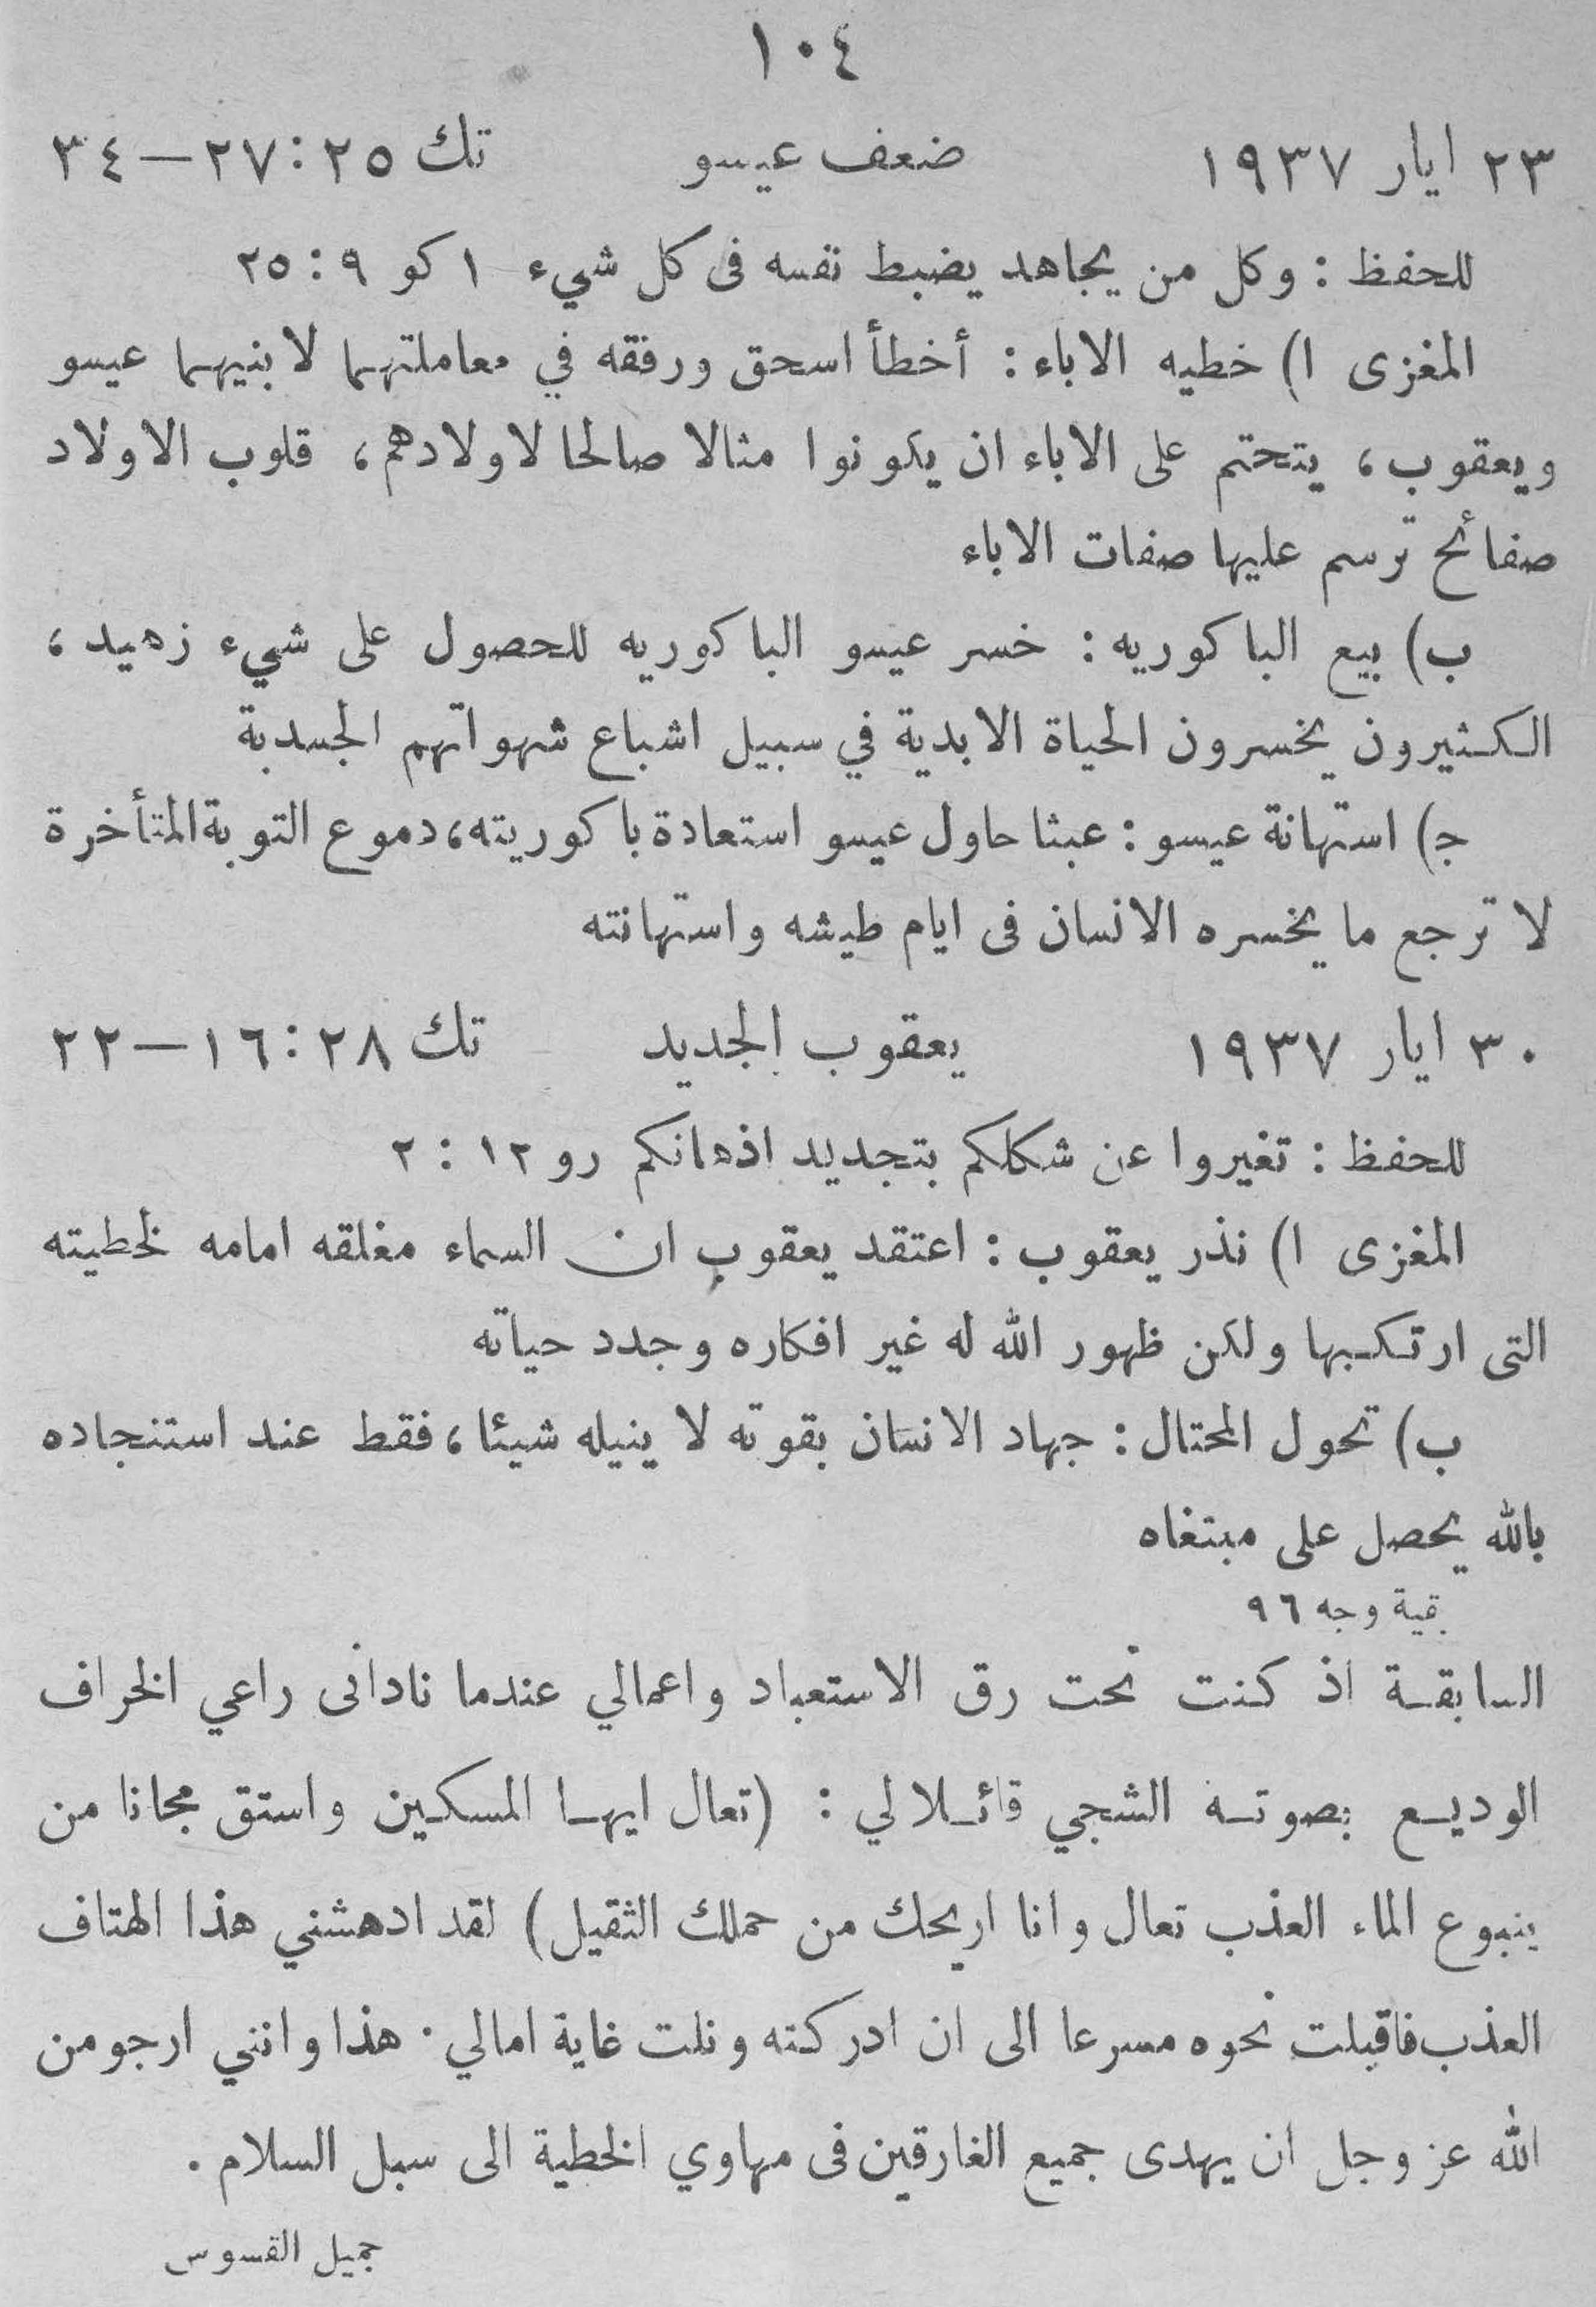 ١٠٤
٢٣ ايار ١٩٣٧ ضعف عيسو تك ٢٥:٢٧—٣٤
للحفظ : وكل من يجاهد يضبط نفسه فى كل شيء ١ كو ٩ : ٢٥
المغزى ا) خطيه الاباء : أخطأ اسحق ورفقه في معاملتهما لابنيهما عيسو
ويعقوب ، يتحتم على الاباء ان يكونوا مثالا صالحا لاولادهم ، قلوب الاولاد
صفائح ترسم عليها صفات الاباء
ب) بيع الباكوريه : خسر عيسو الباكوريه للحصول على شيء زهيد ،
الكثيرون يخسرون الحياة الابدية في سبيل اشباع شهواتهم الجسدية
ج) استهانة عيسو : عبثا حاول عيسو استعادة باكوريته ، دموع التوبة المتأخرة
لا ترجع ما يخسره الانسان فى ايام طيشه واستهانته
٣٠ ايار ١٩٣٧ يعقوب الجديد تك ٢٨:١٦—٢٢
للحفظ : تغيروا عن شكلكم بتجديد اذهانكم رو ١٢ : ٢
المغزى ا) نذر يعقوب : اعتقد يعقوب ان السماء مغلقه امامه لخطيته
التى ارتكبها ولكن ظهور الله له غير افكاره وجدد حياته
ب) تحول المحتال : جهاد الانسان بقوته لا ينيله شيئا ، فقط عند استنجاده
بالله يحصل على مبتغاه
بقية وجه ٩٦
السابقة اذ كنت تحت رق الاستعباد واعمالي عندما نادانى راعي الخراف
الوديع بصوته الشجي قائلا لي : (تعال ايها المسكين واستق مجانا من
ينبوع الماء العذب تعال وانا اريحك من حملك الثقيل) لقد ادهشني هذا الهتاف
العذب فاقبلت نحوه مسرعا الى ان ادركته ونلت غاية امالي . هذا وانني ارجو من
الله عز وجل ان يهدى جميع الغارقين فى مهاوي الخطية الى سبل السلام .
جميل القسوس